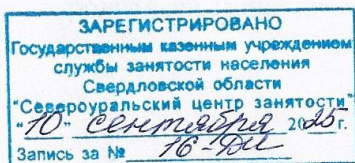 ЗАРЕГИСТРИРОВАНО
Государственным казенным учреждением
службы занятости населения
Свердловской области
"Североуральский центр занятости"
"10" сентября 2025г.
Запись за № 16-ДИ